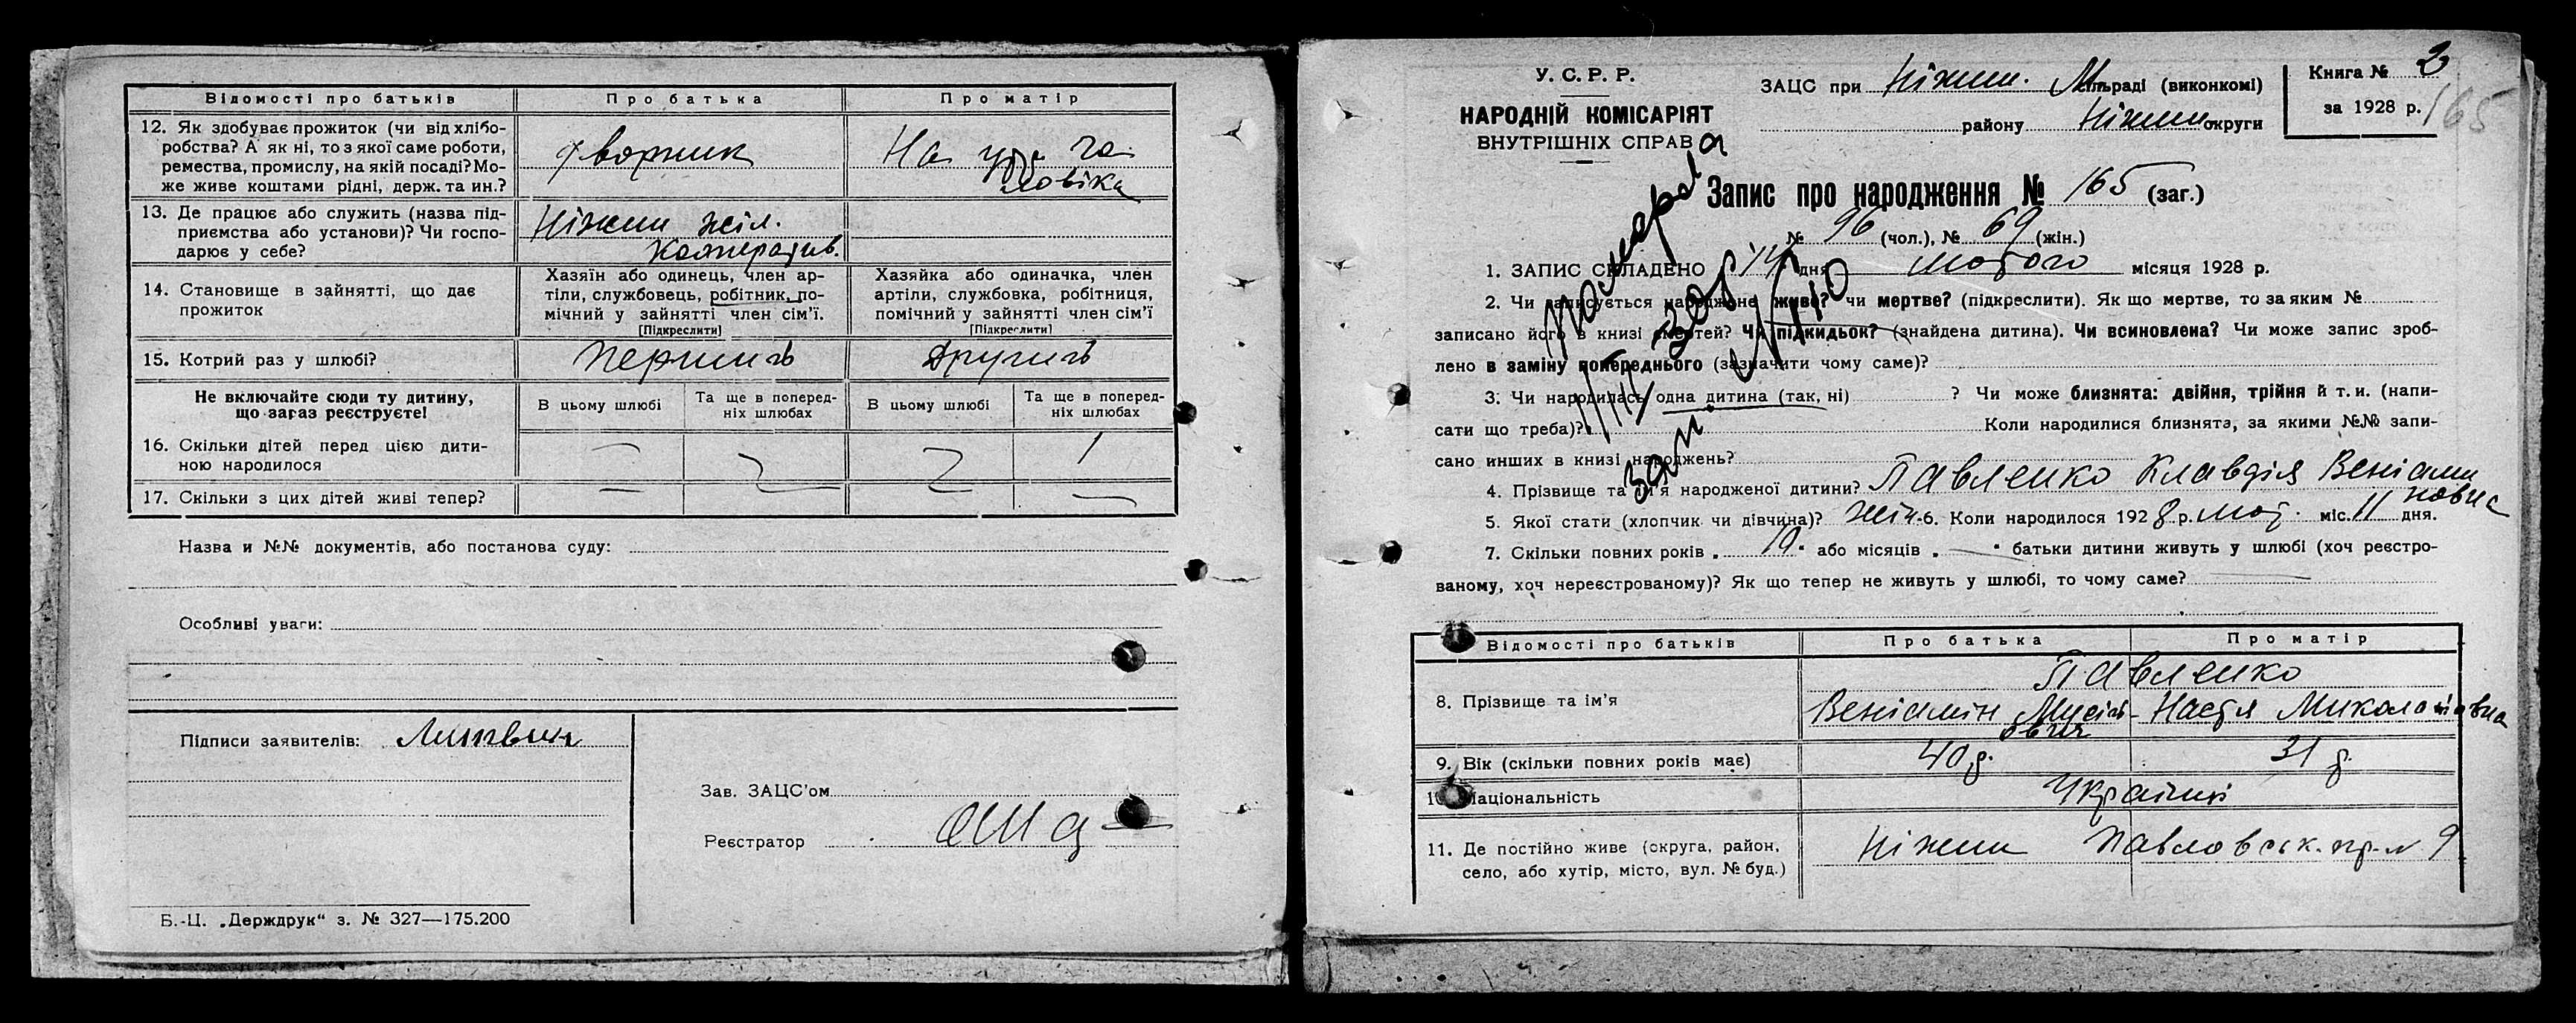 Відомості про батьків Про батька Про матір
12. Як здобуває прожиток (чи від хлібо-
робства? А як ні, то з якої саме роботи,
ремества, промислу, на якій посаді? Мо-
же живе коштами рідні, держ. та ин.?
дворник
На утр. чо
ловіка
13. Де працює або служить (назва під-
приємства або установи)? Чи госпо-
дарює у себе?
Ніжин жіл.
Кооператив.
14. Становище в зайнятті, що дає
прожиток
Хазяїн або одинець, член ар-
тіли, службовець, робітник, по-
мічний у зайнятті член сім'ї.
[Підкреслити]
Хазяйка або одиначка, член
артіли, службовка, робітниця,
помічний у зайнятті член сім'ї
[Підкреслити]
15. Котрий раз у шлюбі? Першій Другий
Не включайте сюди ту дитину,
що зараз реєструєте!
В цьому шлюбі
Та ще в поперед-
ніх шлюбах
В цьому шлюбі
Та ще в поперед-
ніх шлюбах
16. Скільки дітей перед цією дити-
ною народилося
— 2 2 1
17. Скільки з цих дітей живі тепер? — — — —
Назва и №№ документів, або постанова суду:
Особливі уваги:
Підписи заявителів: Литвин
Зав. ЗАЦС'ом
Реєстратор
Б.-Ц. „Держдрук" з. № 327—175.200
У. С. Р. Р.
НАРОДНІЙ КОМІСАРІЯТ
ВНУТРІШНІХ СПРАВ
ЗАЦС при Ніжин. Міськраді (виконкомі)
району Ніжин округи
Книга № 2
за 1928 р.
165
Запис про народження № 165 (заг.)
№ 96 (чол.), № 69 (жін.)
Померла
1. ЗАПИС СКЛАДЕНО 14 дня лютого місяця 1928 р.
2. Чи записується народжене живе? чи мертве? (підкреслити). Як що мертве, то за яким №
записано його в книзі смертей? Чи підкидьок? (знайдена дитина). Чи всиновлена? Чи може запис зроб-
лено в заміну попереднього (зазначити чому саме)?
3. Чи народилась одна дитина (так, ні) ? Чи може близнята: двійня, трійня й т. и. (напи-
сати що треба)? Коли народилися близнята, за якими №№ запи-
сано инших в книзі народжень?
4. Прізвище та ім'я народженої дитини? Павленко Клавдія Веніами
новна
5. Якої статі (хлопчик чи дівчина)? жін. 6. Коли народилося 1928 р. лют. міс. 11 дня.
7. Скільки повних років „ 10 " або місяців „ — " батьки дитини живуть у шлюбі (хоч реєстро-
ваному, хоч нереєстрованому)? Як що тепер не живуть у шлюбі, то чому саме?
Відомості про батьків Про батька Про матір
8. Прізвище та ім'я
Павленко
Веніамін Мусій-
ович
Настя Миколаївна
9. Вік (скільки повних років має) 40 р. 31 р.
10. Національність Україниі
11. Де постійно живе (округа, район,
село, або хутір, місто, вул. № буд.)
Ніжин Павловськ. пр. № 9